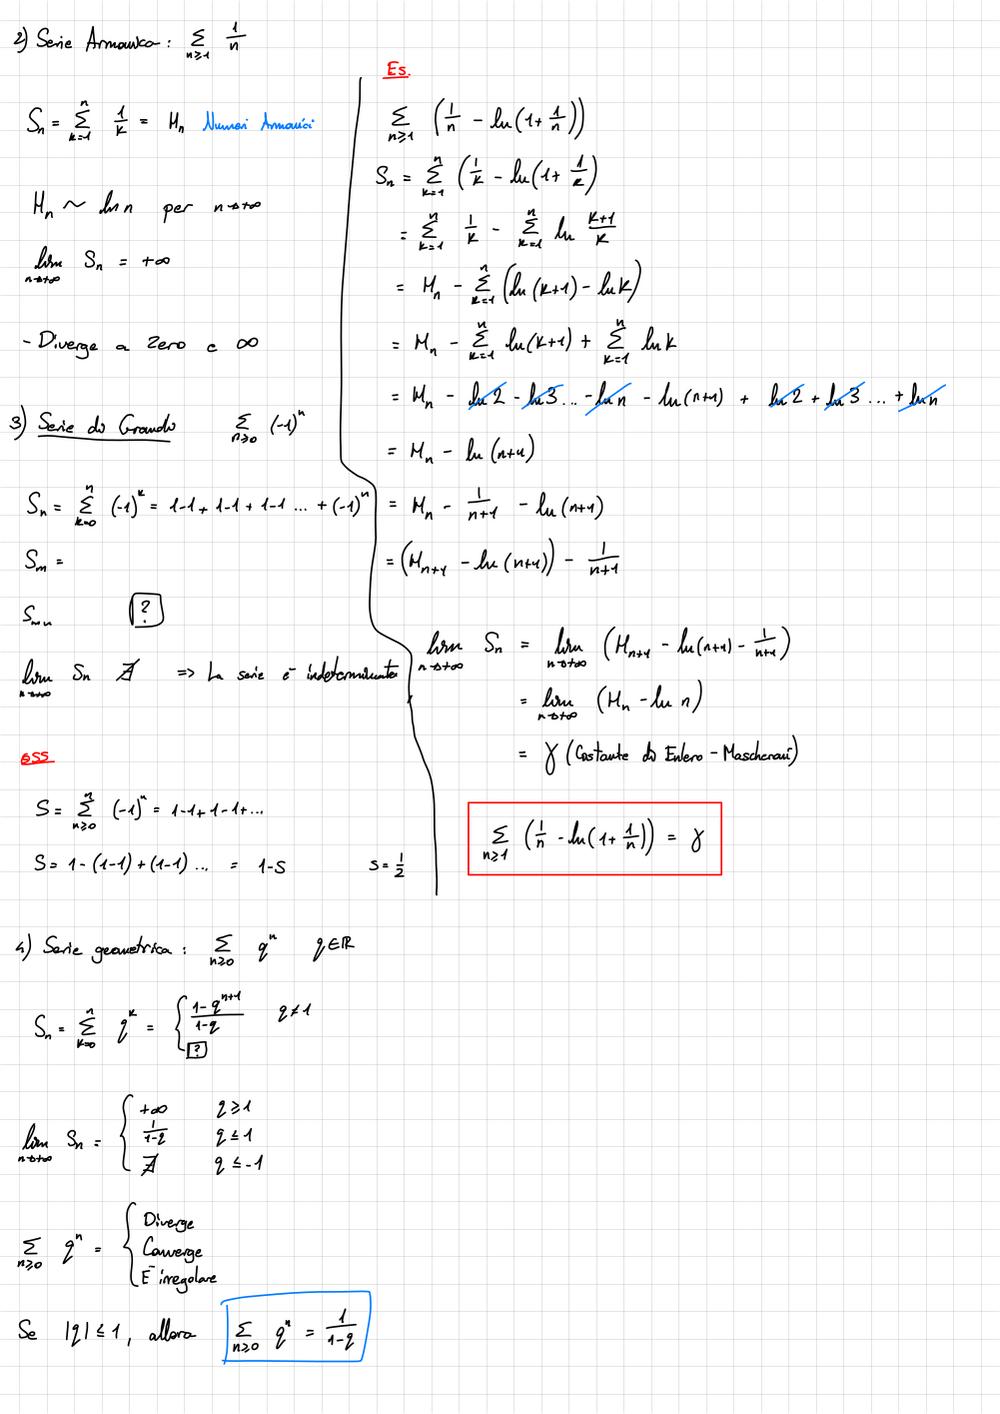 2) Serie Armonica: Σ_{n≥1} 1/n
S_n = Σ_{k=1}^{n} 1/k = H_n Numeri Armonici
H_n ~ ln n per n→+∞
lim_{n→+∞} S_n = +∞
- Diverge a Zero e ∞
3) Serie di Grandi Σ_{n≥0} (-1)^n
S_n = Σ_{k=0}^{n} (-1)^k = 1-1+1-1+1-1 ... +(-1)^n
S_m =
[?]
lim_{n→+∞} S_n ∄ => La serie è indeterminata
OSS
S = Σ_{n≥0}^{n} (-1)^n = 1-1+1-1+...
S = 1-(1-1)+(1-1)... = 1-S S = 1/2
Es.
Σ_{n≥1} (1/n - ln(1+1/n))
S_n = Σ_{k=1}^{n} (1/k - ln(1+1/k)
= Σ_{k=1}^{n} 1/k - Σ_{k=1}^{n} ln (k+1)/k
= H_n - Σ_{k=1}^{n} (ln(k+1) - ln k)
= H_n - Σ_{k=1}^{n} ln(k+1) + Σ_{k=1}^{n} ln k
= H_n - ln 2 - ln 3 ... - ln n - ln(n+1) + ln 2 + ln 3 ... + ln n
= H_n - ln(n+1)
= H_n - 1/(n+1) - ln(n+1)
= (H_{n+1} - ln(n+1)) - 1/(n+1)
lim_{n→+∞} S_n = lim_{n→+∞} (H_{n+1} - ln(n+1) - 1/(n+1))
= lim_{n→+∞} (H_n - ln n)
= γ (Costante di Eulero-Mascheroni)
Σ_{n≥1} (1/n - ln(1+1/n)) = γ
4) Serie geometrica: Σ_{n≥0} q^n q∈ℝ
S_n = Σ_{k=0}^{n} q^k = { (1-q^{n+1})/(1-q) q≠1
[?]
lim_{n→+∞} S_n = { +∞ q≥1
1/(1-q) q≤1
∄ q≤-1
Σ_{n≥0} q^n = { Diverge
Converge
È irregolare
Se |q|≤1, allora Σ_{n≥0} q^n = 1/(1-q)